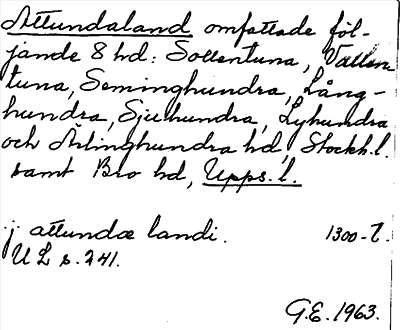 Attundaland omfattade föl-
jande 8 hd: Sollentuna, Vallen-
tuna, Seminghundra, Lång-
hundra, Sjuhundra, Lyhundra
och Ärlinghundra hd, Stockh.l.
samt Bro hd, Upps.l.
j attundæ landi. 1300-t.
UL s. 241.
G.E. 1963.